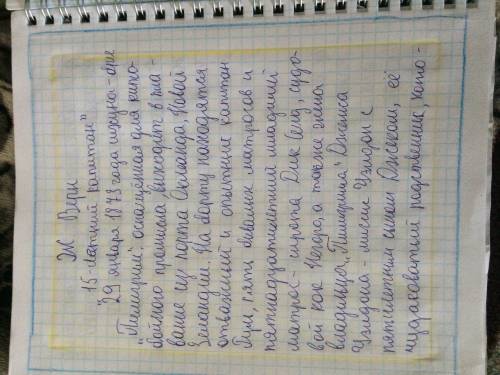 Ж Верн
15-летний капитан"
"29 января 1873 года шхуна-бриг
"Пилигрим", оснащённая для кито-
бойного промысла, выходит в пла-
вание из порта Окланда, Новая
Зеландия. На борту находятся
отважный и опытный капитан
Гуль, пять бывалых матросов и
пятнадцатилетний младший
матрос - сирота Дик Сенд, судо-
вой кок Негоро, а также жена
владельца "Пилигрима" Джеймса
Уэлдона - миссис Уэлдон с
пятилетним сыном Джеком, её
чудаковатый родственник, кото-